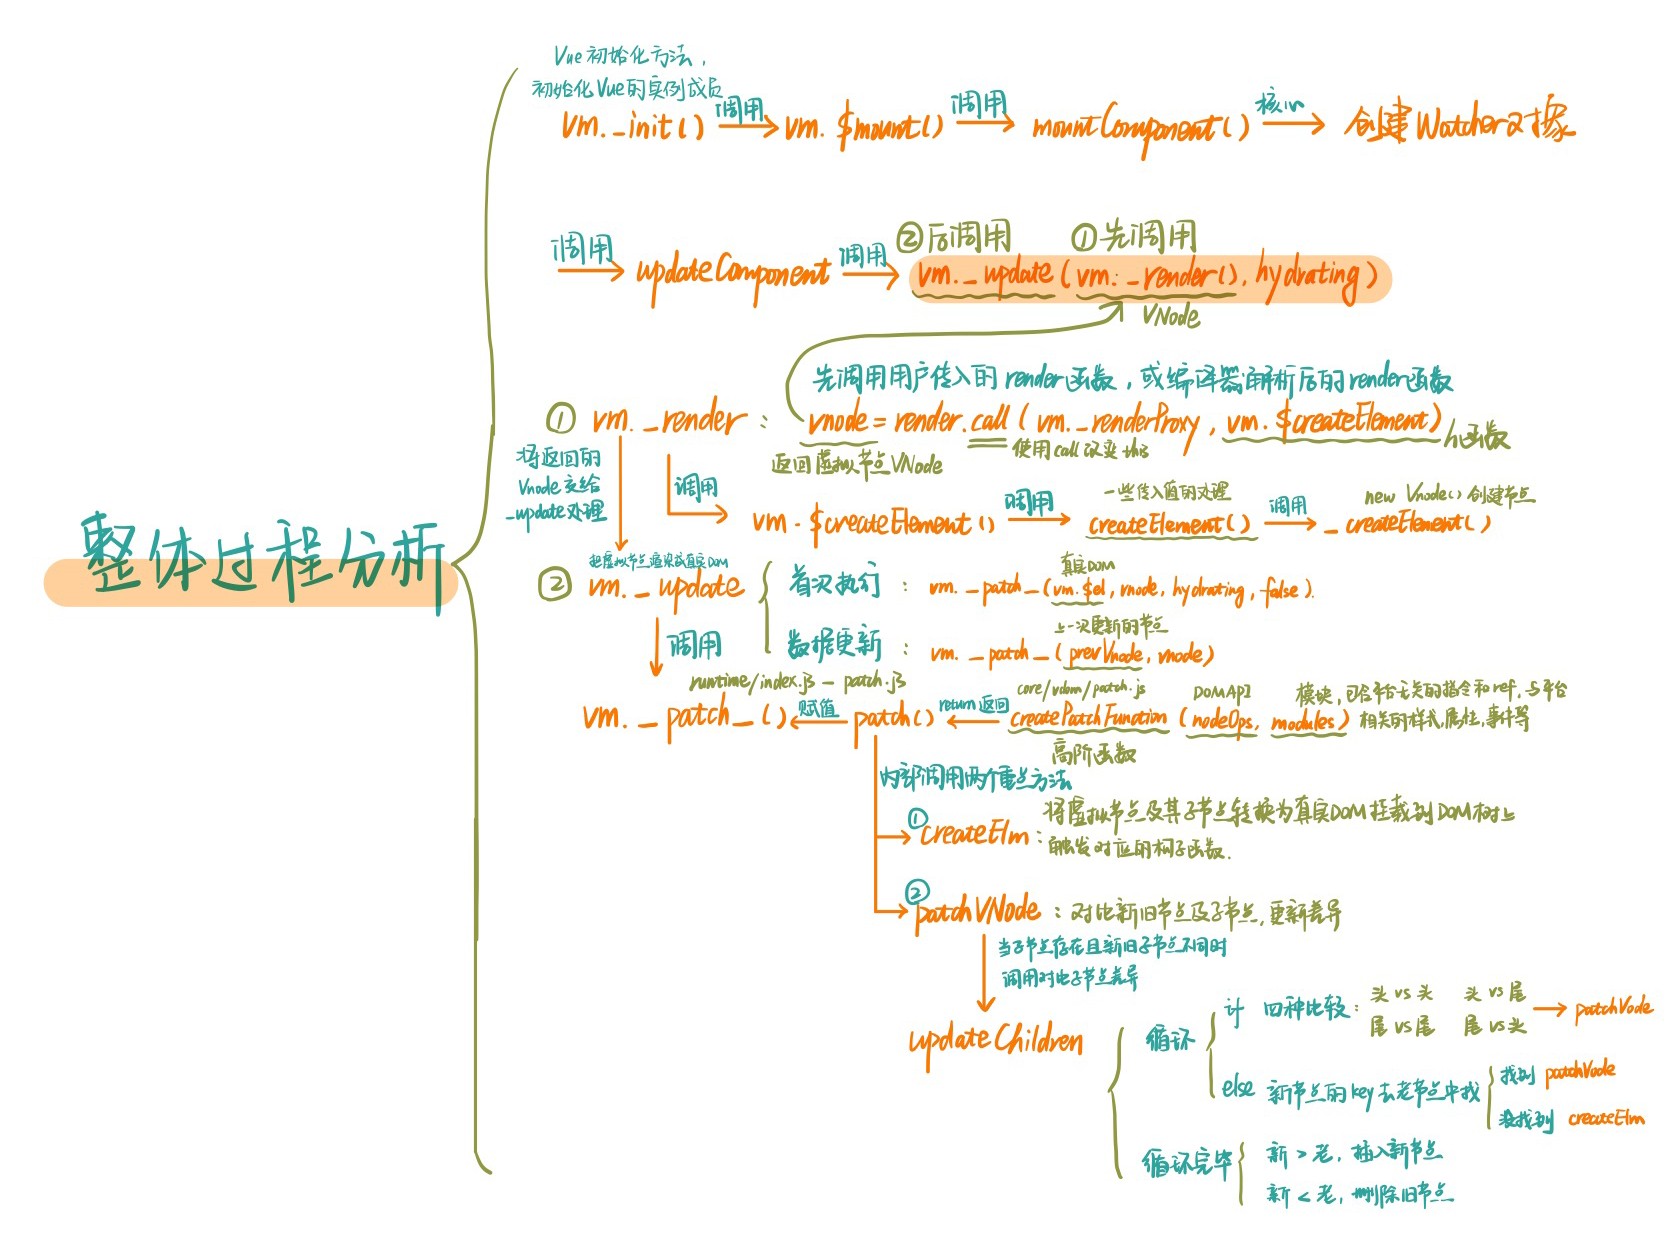 整体过程分析
Vue初始化方法，
初始化Vue的实例成员
vm._init() 调用 vm.$mount() 调用 mountComponent() 核心 创建Watcher对象
调用 updateComponent 调用 vm._update(vm._render(), hydrating)
②后调用 ①先调用
VNode
先调用用户传入的render函数，或编译器解析后的render函数
① vm._render： vnode = render.call(vm._renderProxy, vm.$createElement) h函数
返回虚拟节点VNode 使用call改变this
将返回的
Vnode交给
_update处理
调用 vm.$createElement() 调用 createElement() 调用 _createElement()
一些传入值的处理
new Vnode()创建节点
把虚拟节点渲染成真实DOM
② vm._update
首次执行： vm._patch_(vm.$el, vnode, hydrating, false).
真实DOM
数据更新： vm._patch_(prevVnode, vnode)
上一次更新的节点
调用
runtime/index.js - patch.js
vm._patch_() 赋值 patch() return返回 createPatchFunction(nodeOps, modules)
core/vdom/patch.js
高阶函数
DOMAPI
模块，包含平台无关的指令和ref，与平台
相关的样式,属性,事件等
内部调用两个重点方法
① createElm：
将虚拟节点及其子节点转换为真实DOM挂载到DOM树上
触发对应的钩子函数.
② patchVNode：对比新旧节点及子节点，更新差异
当子节点存在且新旧子节点不同时
调用对比子节点差异
updateChildren
循环
if 四种比较： 头vs头 头vs尾
尾vs尾 尾vs头
patchVode
else 新节点的key去老节点中找
找到 patchVode
没找到 createElm
循环完毕
新 > 老，插入新节点
新 < 老，删除旧节点